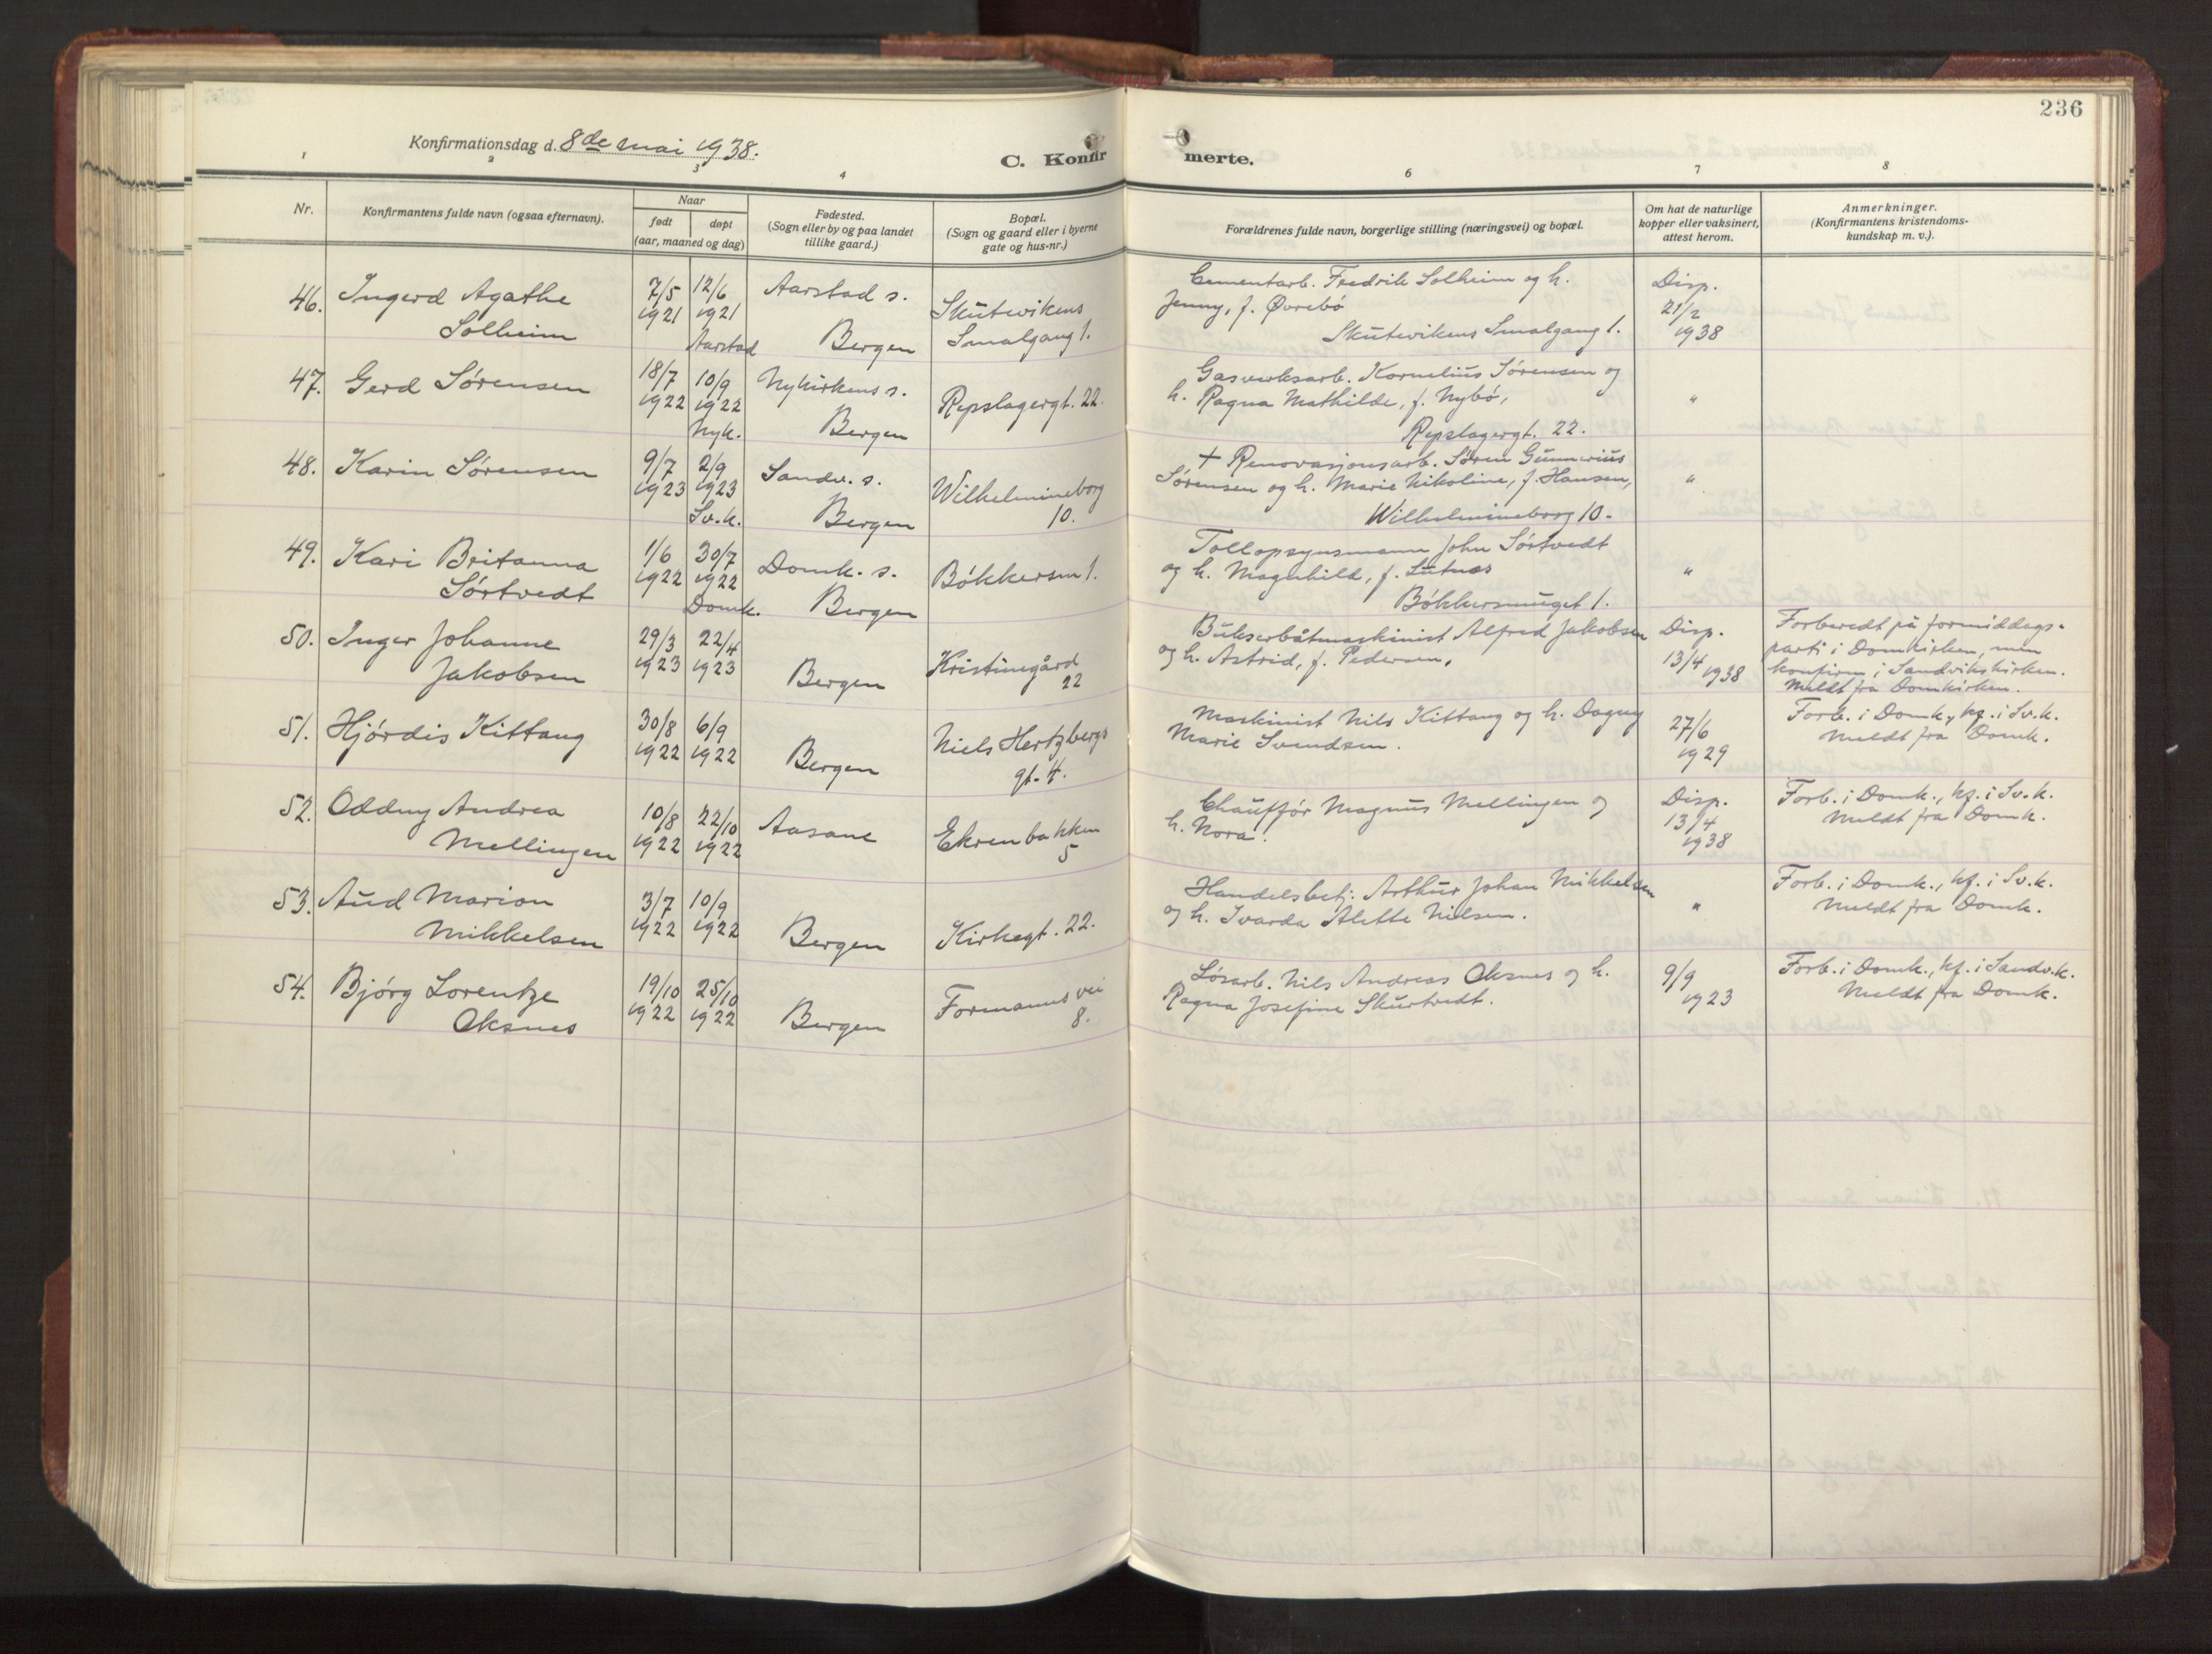 236
Konfirmationsdag d. 8de mai 1938.
C. Konfir
merte.
1 2 3 4 6 7 8
Nr.
Konfirmantens fulde navn (ogsaa efternavn).
Naar
født døpt
(aar, maaned og dag)
Fødested.
(Sogn eller by og paa landet
tillike gaard.)
Bopæl.
(Sogn og gaard eller i byerne
gate og hus-nr.)
Forældrenes fulde navn, borgerlige stilling (næringsvei) og bopæl.
Om hat de naturlige
kopper eller vaksinert,
attest herom.
Anmerkninger.
(Konfirmantens kristendoms-
kundskap m. v.).
46. Ingerd Agathe
Solheim
7/5
1921
12/6
1921
Aarstad
Aarstad s.
Bergen
Skutevikens
Smalgang 1.
Cementarb. Fredrik Solheim og h.
Jenny, f. Øvrebø
Skutevikens Smalgang 1.
Disp.
21/2
1938
47. Gerd Sørensen
18/7
1922
10/9
1922
Nyk.
Nykirkens s.
Bergen
Repslagergt. 22.
Gasverksarb. Kornelius Sørensen og
h. Ragna Mathilde, f. Nybø,
Repslagergt. 22.
"
48. Karin Sørensen
9/7
1923
2/9
1923
Sv.k.
Sandv. s.
Bergen
Wilhelmineborg
10.
+ Renovasjonsarb. Søren Gunnerius
Sørensen og h. Marie Nikoline, f. Hansen,
Wilhelmineborg 10.
"
49. Kari Britanna
Sørtvedt
1/6
1922
30/7
1922
Domk.
Domk. s.
Bergen
Bøkkersm 1.
Tollopsynsmann John Sørtvedt
og h. Magnhild, f. Lutnæs
Bøkkersmuget 1.
"
50. Inger Johanne
Jakobsen
29/3
1923
22/4
1923
Bergen
Kristinegård
22
Bukserbåtmaskinist Alfred Jakobsen
og h. Astrid, f. Pedersen.
Disp.
13/4
1938
Forberedt på formiddags-
parti i Domkirken, men
konfirm. i Sandvikskirken.
Meldt fra Domkirken.
51. Hjørdis Kittang
30/8
1922
6/9
1922
Bergen
Niels Hertzbergs
gt. 4.
Maskinist Nils Kittang og h. Dagny
Marie Svendsen.
27/6
1929
Forb. i Domk., kf. i Sv.k.
Meldt fra Domk.
52. Oddny Andrea
Mellingen
10/8
1922
22/10
1922
Aasane
Ekrenbakken
5
Chauffør Magnus Mellingen og
h. Nora.
Disp.
13/4
1938
Forb. i Domk., kf. i Sv.k.
Meldt fra Domk.
53. Aud Marion
Mikkelsen
3/7
1922
10/9
1922
Bergen
Kirkegt. 22.
Handelsbetj. Arthur Johan Mikkelsen
og h. Ivarda Alette Nilsen.
"
Forb. i Domk., kf. i Sv.k.
Meldt fra Domk.
54. Bjørg Lorentze
Oksnes
19/10
1922
25/10
1922
Bergen
Formanns vei
8.
Løsarb. Nils Andreas Oksnes og h.
Ragna Josefine Skurtvedt.
9/9
1923
Forb. i Domk., kf. i Sandv.k.
Meldt fra Domk.